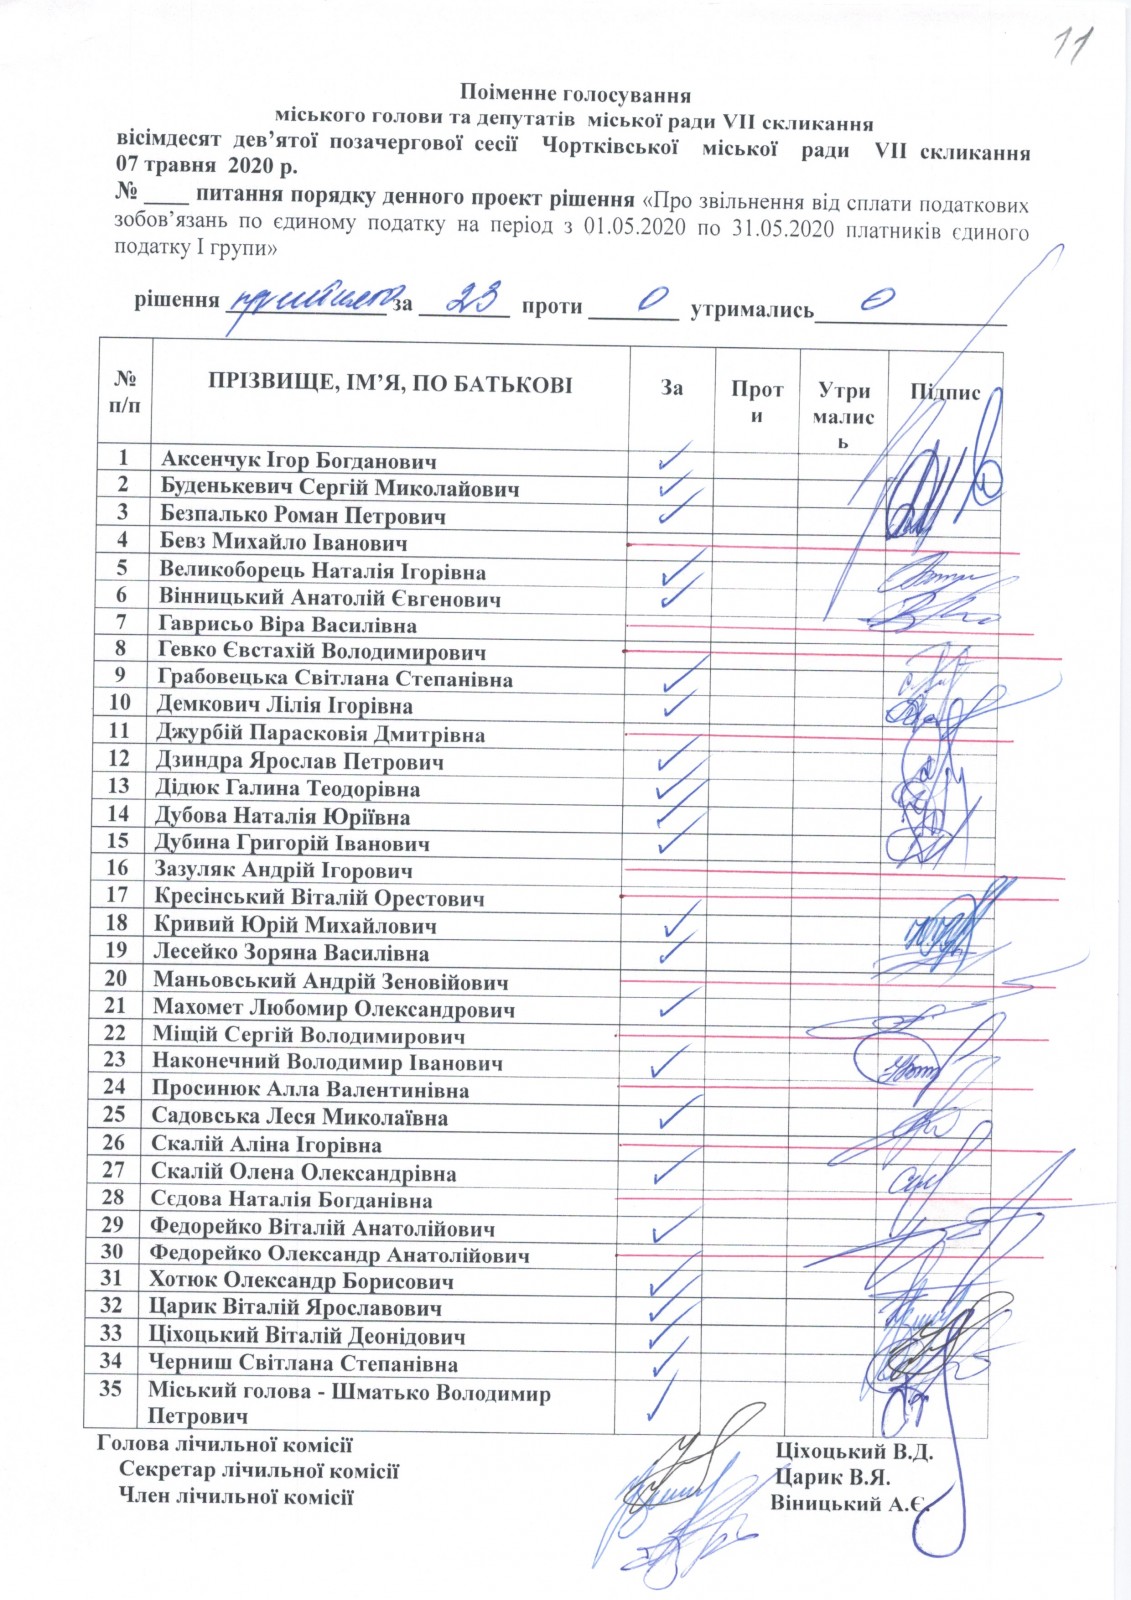 11
Поіменне голосування
міського голови та депутатів міської ради VII скликання
вісімдесят дев’ятої позачергової сесії Чортківської міської ради VII скликання
07 травня 2020 р.
№ ____ питання порядку денного проект рішення «Про звільнення від сплати податкових
зобов’язань по єдиному податку на період з 01.05.2020 по 31.05.2020 платників єдиного
податку І групи»
рішення прийнято за 23 проти 0 утримались 0
№ п/п ПРІЗВИЩЕ, ІМ’Я, ПО БАТЬКОВІ За Проти Утрималисьь Підпис
1 Аксенчук Ігор Богданович ✓
2 Буденькевич Сергій Миколайович ✓
3 Безпалько Роман Петрович ✓
4 Бевз Михайло Іванович
5 Великоборець Наталія Ігорівна ✓
6 Вінницький Анатолій Євгенович ✓
7 Гаврисьо Віра Василівна
8 Гевко Євстахій Володимирович
9 Грабовецька Світлана Степанівна ✓
10 Демкович Лілія Ігорівна ✓
11 Джурбій Парасковія Дмитрівна
12 Дзиндра Ярослав Петрович ✓
13 Дідюк Галина Теодорівна ✓
14 Дубова Наталія Юріївна ✓
15 Дубина Григорій Іванович ✓
16 Зазуляк Андрій Ігорович
17 Кресінський Віталій Орестович
18 Кривий Юрій Михайлович ✓
19 Лесейко Зоряна Василівна ✓
20 Маньовський Андрій Зеновійович
21 Махомет Любомир Олександрович ✓
22 Міщій Сергій Володимирович
23 Наконечний Володимир Іванович ✓
24 Просинюк Алла Валентинівна
25 Садовська Леся Миколаївна ✓
26 Скалій Аліна Ігорівна
27 Скалій Олена Олександрівна ✓
28 Сєдова Наталія Богданівна
29 Федорейко Віталій Анатолійович ✓
30 Федорейко Олександр Анатолійович
31 Хотюк Олександр Борисович ✓
32 Царик Віталій Ярославович ✓
33 Ціхоцький Віталій Деонідович ✓
34 Черниш Світлана Степанівна ✓
35 Міський голова - Шматько Володимир ✓
Петрович
Голова лічильної комісії Ціхоцький В.Д.
Секретар лічильної комісії Царик В.Я.
Член лічильної комісії Віницький А.Є.